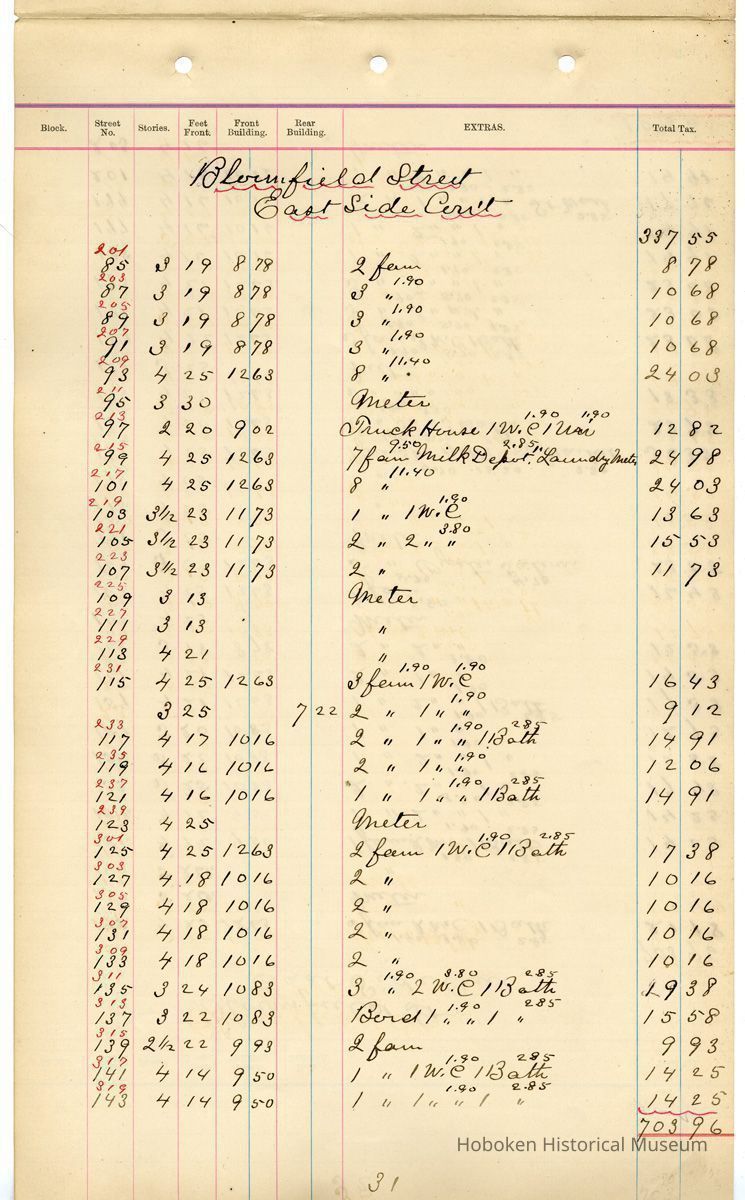 Block. Street No. Stories. Feet Front. Front Building. Rear Building. EXTRAS. Total Tax.
Bloomfield Street
East Side Con't
337 55
201
85 3 19 8 78 2 fam 8 78
203 1.90
87 3 19 8 78 3 " 10 68
205 1.90
89 3 19 8 78 3 " 10 68
207 1.90
91 3 19 8 78 3 " 10 68
209 11.40
93 4 25 12 63 8 " 24 03
211
95 3 30 Meter
213 1.90 1.90
97 2 20 9 02 Truck House 1 W.C 1 Uri 12 82
215 9.50 2.85
99 4 25 12 63 7 fam Milk Depot. Laundry Meter 24 98
217 11.40
101 4 25 12 63 8 " 24 03
219 1.90
103 3½ 23 11 73 1 " 1 W.C 13 63
221 3.80
105 3½ 23 11 73 2 " 2 " " 15 53
223
107 3½ 23 11 73 2 " 11 73
225
109 3 13 Meter
227
111 3 13 "
229
113 4 21 "
231 1.90 1.90
115 4 25 12 63 3 fam 1 W.C 16 43
1.90
3 25 7 22 2 " 1 " " 9 12
233 1.90 2.85
117 4 17 10 16 2 " 1 " " 1 Bath 14 91
235 1.90
119 4 16 10 16 2 " 1 " " 12 06
237 1.90 2.85
121 4 16 10 16 1 " 1 " " 1 Bath 14 91
239
123 4 25 Meter
301 1.90 2.85
125 4 25 12 63 2 fam 1 W.C 1 Bath 17 38
303
127 4 18 10 16 2 " 10 16
305
129 4 18 10 16 2 " 10 16
307
131 4 18 10 16 2 " 10 16
309
133 4 18 10 16 2 " 10 16
311 1.90 3.80 2.85
135 3 24 10 83 3 " 2 W.C 1 Bath 19 38
313 1.90 2.85
137 3 22 10 83 Bord 1 " " 1 " 15 58
315
139 2½ 22 9 93 2 fam 9 93
317 1.90 2.85
141 4 14 9 50 1 " 1 W.C 1 Bath 14 25
319 1.90 2.85
143 4 14 9 50 1 " 1 " " 1 " 14 25
703 96
Hoboken Historical Museum
31